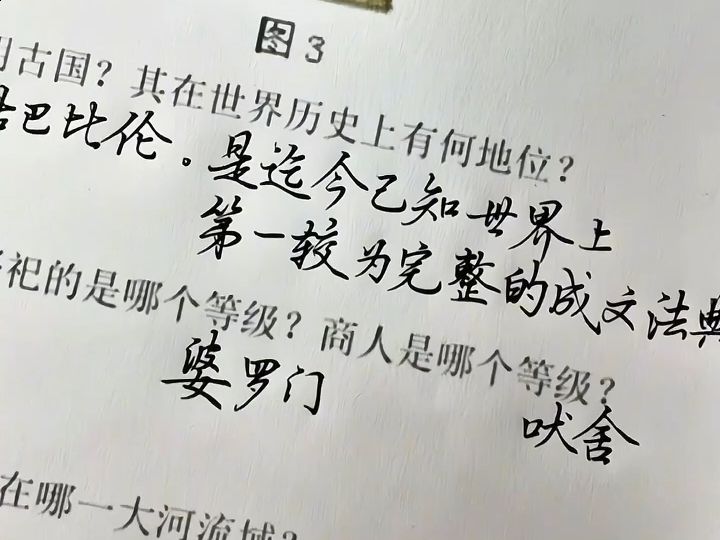 图3
古国？其在世界历史上有何地位？
古巴比伦。是迄今已知世界上
第一较为完整的成文法典
祀的是哪个等级？商人是哪个等级？
婆罗门
吠舍
在哪一大河流域？